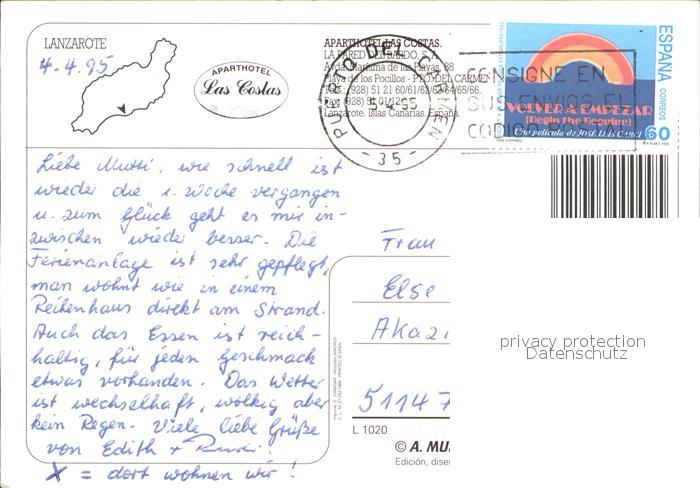 LANZAROTE
4.4.95
APARTHOTEL
Las Costas
APARTHOTEL LAS COSTAS.
LA PARED DEL BARDO, S.A.
Avda. Maritima de las Playas, 88
Playa de los Pocillos - PTO. DEL CARMEN
Tels.: (928) 51 21 60/61/62/63/64/65/66.
Fax (928) 51 01 12
Lanzarote. Islas Canarias. España.
PUERTO DEL CARMEN
5-4.95
- 35 -
CONSIGNE EN
SUS ENVIOS EL
CODIGO
ESPAÑA
CORREOS
VOLVER A EMPEZAR
(Begin the Beguine)
Una película de José Luis Garci
60
Liebe Mutti, wie schnell ist
wieder die 1. Woche vergangen
u. zum Glück geht es mir in-
zwischen wieder besser. Die
Ferienanlage ist sehr gepflegt,
man wohnt wie in einem
Reihenhaus direkt am Strand.
Auch das Essen ist reich-
haltig, für jeden Geschmack
etwas vorhanden. Das Wetter
ist wechselhaft, wolkig aber
kein Regen. Viele liebe Grüße
von Edith + Rudi.
X = dort wohnen wir!
Frau
Else
Akazi
51147
privacy protection
Datenschutz
L 1020
© A. MU
Edición, dise